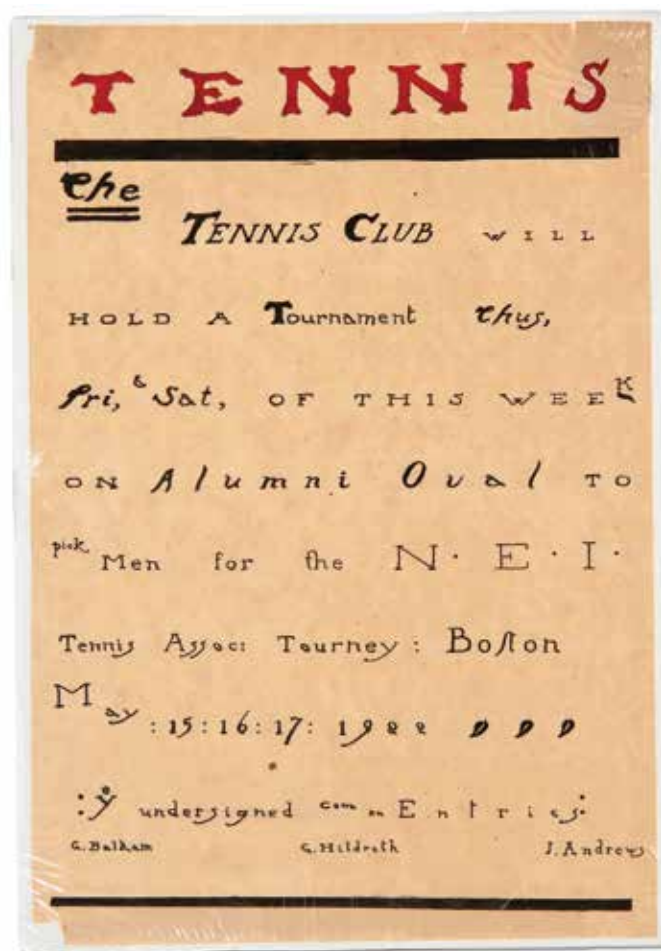 TENNIS
The
TENNIS CLUB WILL
HOLD A Tournament Thus,
Fri, & Sat, OF THIS WEEK
ON Alumni Oval TO
pick Men for the N. E. I.
Tennis Assoc: Tourney: Boston
May :15:16:17: 1922
:Ye undersigned com on Entries:
G. Balham G. Hildreth J. Andrews